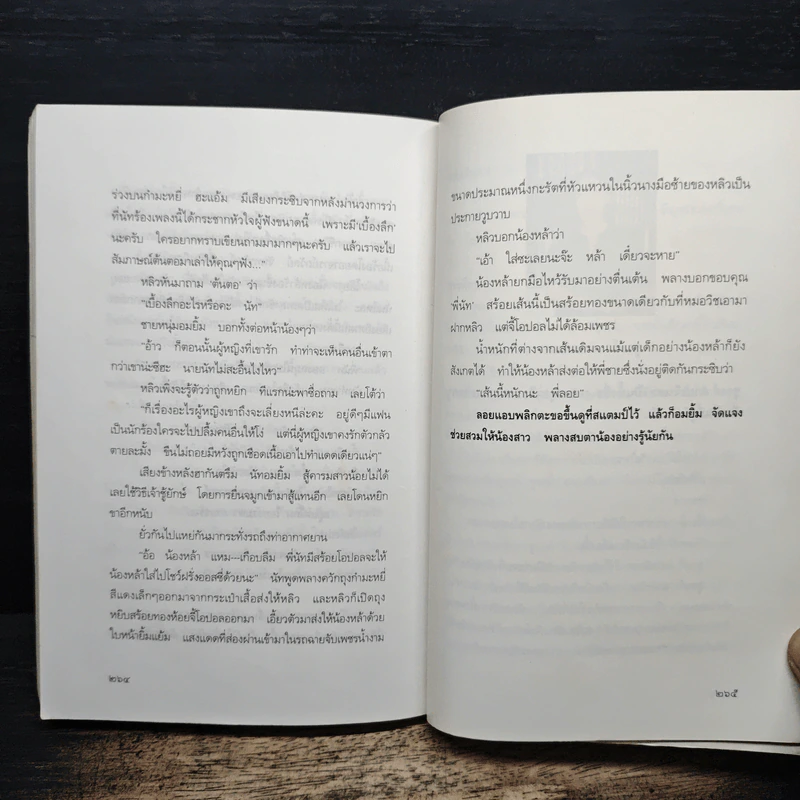 ร่วงบนกำมะหยี่ ฮะแอ้ม มีเสียงกระซิบจากหลังม่านวงการว่า
ที่นัทร้องเพลงนี้ได้กระชากหัวใจผู้ฟังขนาดนี้ เพราะมี'เบื้องลึก'
นะครับ ใครอยากทราบเขียนถามมามากๆนะครับ แล้วเราจะไป
สัมภาษณ์ต้นตอมาเล่าให้คุณๆฟัง..."
หลิวหันมาถาม 'ต้นตอ' ว่า
"เบื้องลึกอะไรหรือคะ นัท"
ชายหนุ่มอมยิ้ม บอกทั้งต่อหน้าน้องๆว่า
"อ้าว ก็ตอนนั้นผู้หญิงที่เขารัก ทำท่าจะเห็นคนอื่นเข้าตา
กว่าเขาน่ะซีฮะ นายนัทไม่สะอื้นไงไหว"
หลิวเพิ่งจะรู้ตัวว่าถูกหยิก ทีแรกน่ะพาซื่อถาม เลยโต้ว่า
"ก็เรื่องอะไรผู้หญิงเขาถึงจะเลี่ยงหนีล่ะคะ อยู่ดีๆมีแฟน
เป็นนักร้องใครจะไปปลื้มคนอื่นให้โง่ แต่นี่ผู้หญิงเขาคงรักตัวกลัว
ตายละมั้ง ขืนไม่ถอยมีหวังถูกเชือดเนื้อเอาไปทำแดดเดียวแน่ๆ"
เสียงข้างหลังฮากันครืม นัทอมยิ้ม สู้คารมสาวน้อยไม่ได้
เลยใช้วิธีเจ้าชู้ยักษ์ โดยการยื่นจมูกเข้ามาสู้แทนอีก เลยโดนหยิก
ขาอีกหนับ
ยั่วกันไปแหย่กันมากระทั่งรถถึงท่าอากาศยาน
"อ้อ น้องหล้า แหม—เกือบลืม พี่นัทมีสร้อยโอปอลจะให้
น้องหล้าใส่ไปโชว์ฝรั่งออสซี่ด้วยนะ" นัทพูดพลางควักถุงกำมะหยี่
สีแดงเล็กๆออกมาจากกระเป๋าเสื้อส่งให้หลิว และหลิวก็เปิดถุง
หยิบสร้อยทองห้อยจี้โอปอลออกมา เอี้ยวตัวมาส่งให้น้องหล้าด้วย
ใบหน้ายิ้มแย้ม แสงแดดที่ส่องผ่านเข้ามาในรถฉายจับเพชรน้ำงาม
๒๖๔
ขนาดประมาณหนึ่งกะรัตที่หัวแหวนในนิ้วนางมือซ้ายของหลิวเป็น
ประกายวูบวาบ
หลิวบอกน้องหล้าว่า
"เอ้า ใส่ซะเลยนะจ๊ะ หล้า เดี๋ยวจะหาย"
น้องหล้ายกมือไหว้รับมาอย่างตื่นเต้น พลางบอกขอบคุณ
'พี่นัท' สร้อยเส้นนี้เป็นสร้อยทองขนาดเดียวกับที่หมอวิชเอามา
ฝากหลิว แต่จี้โอปอลไม่ได้ล้อมเพชร
น้ำหนักที่ต่างจากเส้นเดิมจนแม้แต่เด็กอย่างน้องหล้าก็ยัง
สังเกตได้ ทำให้น้องหล้าส่งต่อให้พี่ชายซึ่งนั่งอยู่ติดกันกระซิบว่า
"เส้นนี้หนักนะ พี่ลอย"
ลอยแอบพลิกตะขอขึ้นดูที่สแตมป์ไว้ แล้วก็อมยิ้ม จัดแจง
ช่วยสวมให้น้องสาว พลางสบตาน้องอย่างรู้นัยกัน
๒๖๕